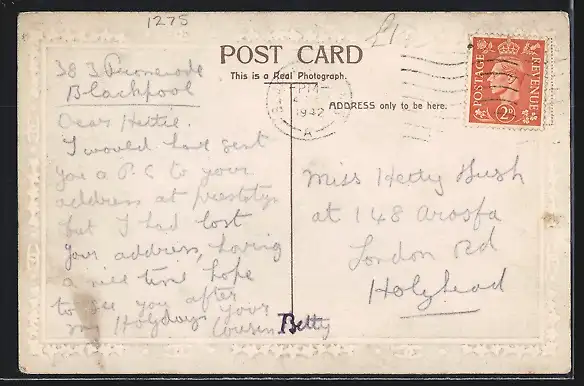 1275
£1
POST CARD
This is a Real Photograph.
ADDRESS only to be here.
POSTAGE REVENUE
2D
PM
1942
A
383 Promenade
Blackpool
Dear Hettie.
I would have sent
you a P.C to your
address at
but I had lost
your address, having
a nice time hope
to see you after
my Holydays your
Cousin Betty
Miss Hetty Hush
at 148 Arosfa
London Rd
Holyhead